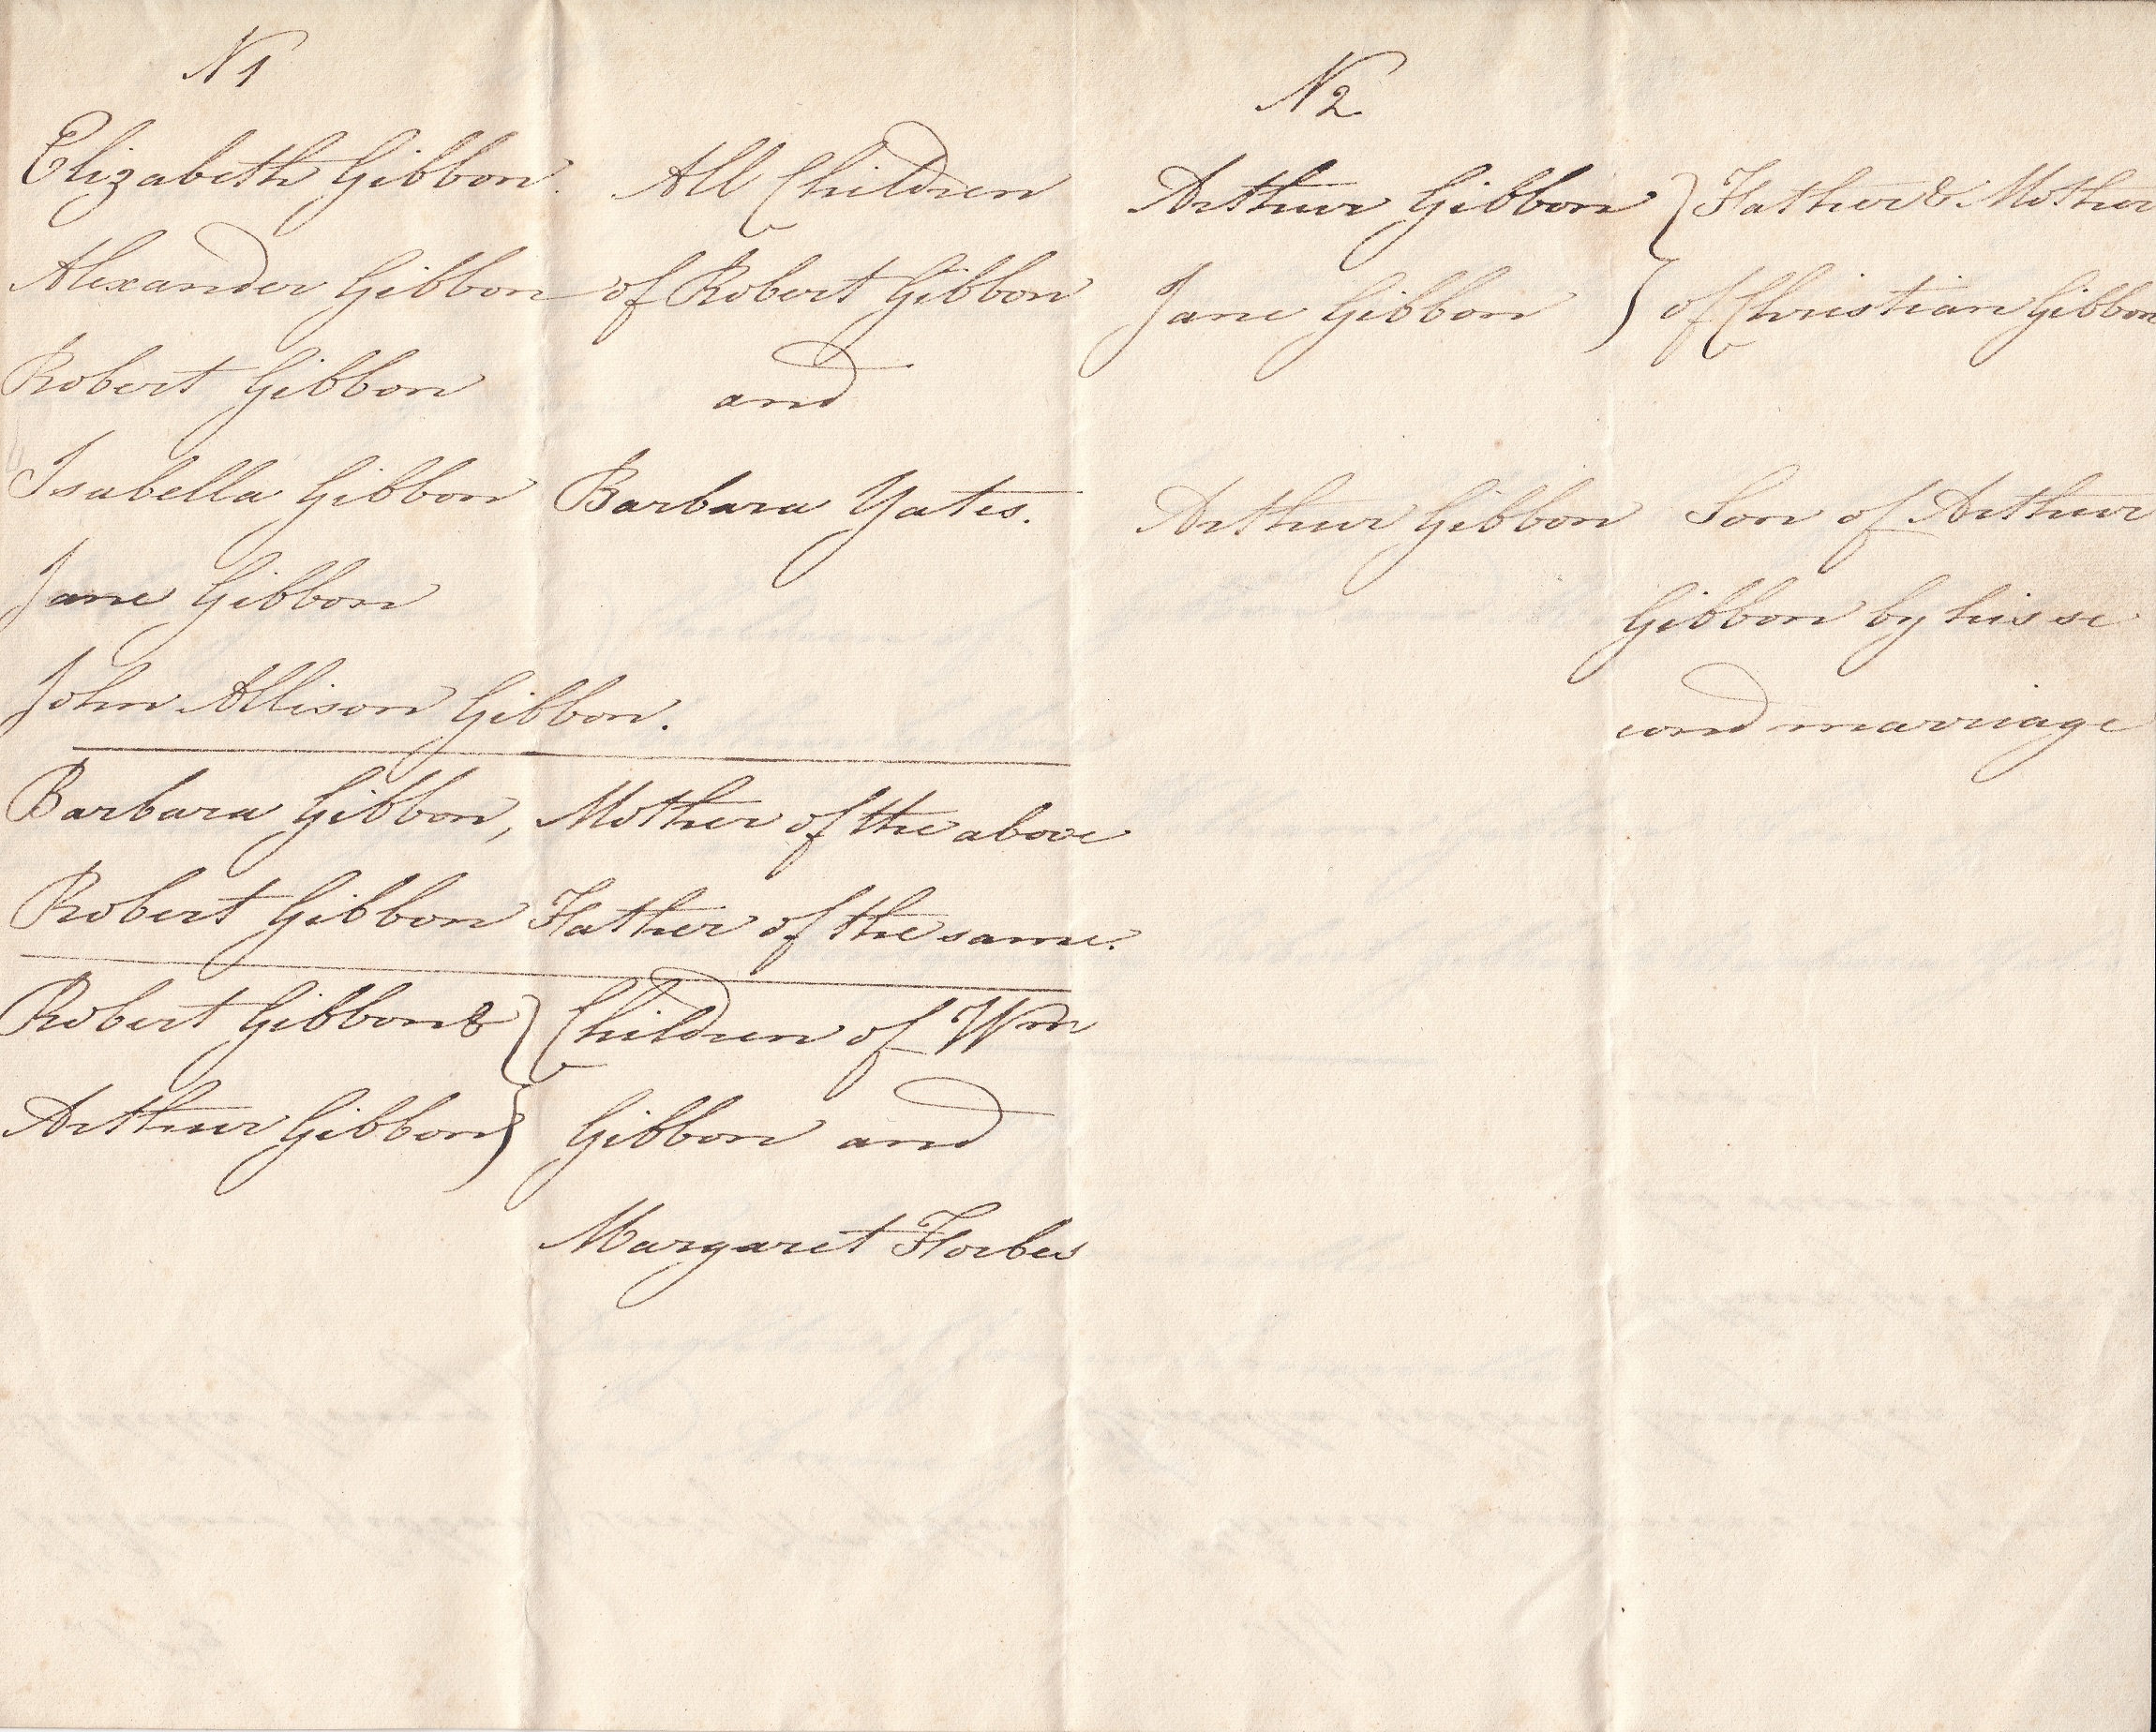 N 1
Elizabeth Gibbon. All Children
Alexander Gibbon of Robert Gibbon
Robert Gibbon and
Isabella Gibbon Barbara Yates.
Jane Gibbon
John Allison Gibbon.
Barbara Gibbon, Mother of the above
Robert Gibbon Father of the same.
Robert Gibbon & } Children of Wm
Arthur Gibbon } Gibbon and
Margaret Forbes
N 2
Arthur Gibbon } Father & Mother
Jane Gibbon } of Christian Gibbon
Arthur Gibbon Son of Arthur
Gibbon by his se
cond marriage